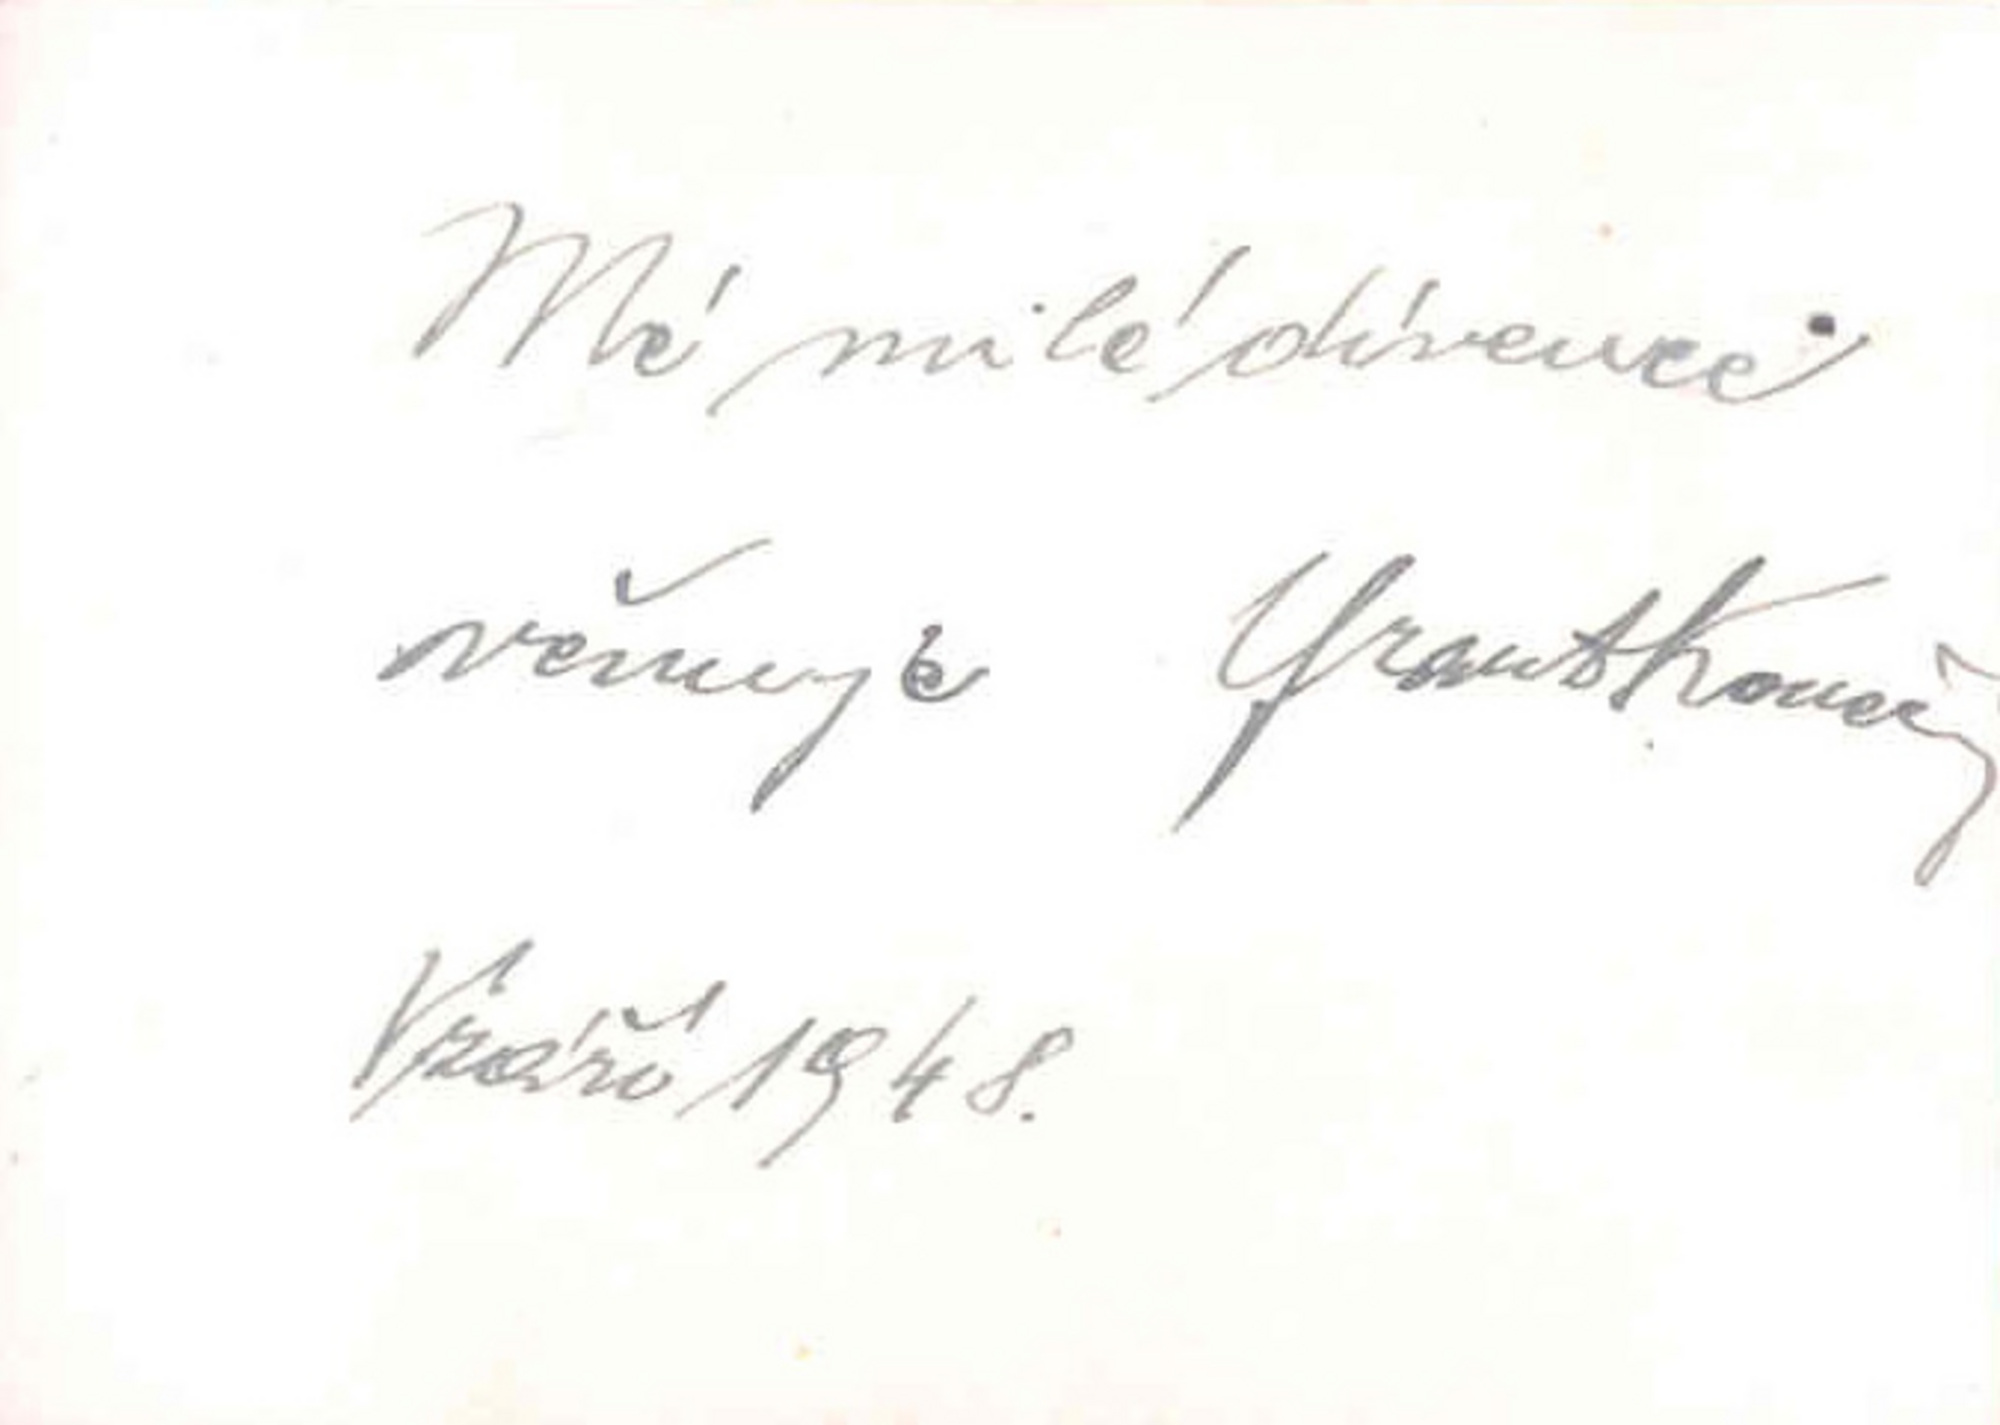 Mé milé dívence
věnuje
V září 1948.